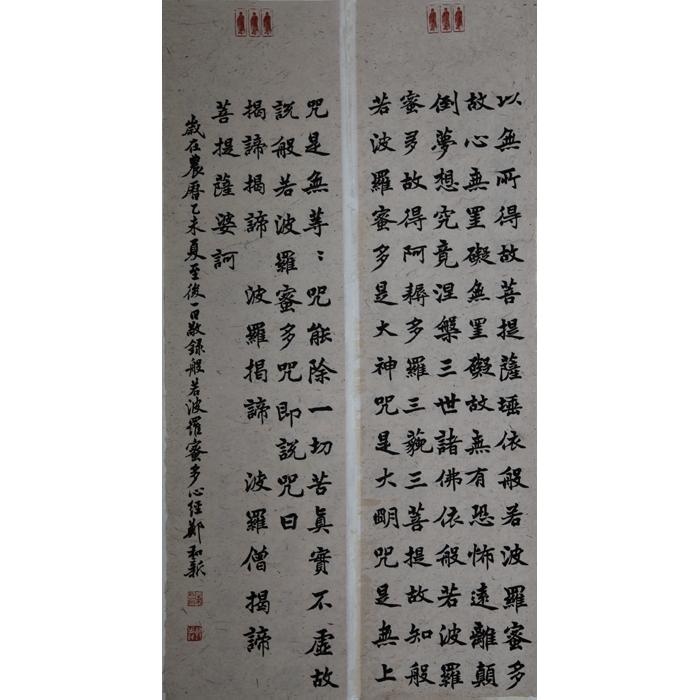 以無所得故菩提薩埵依般若波羅蜜多
故心無罣礙無罣礙故無有恐怖遠離顛
倒夢想究竟涅槃三世諸佛依般若波羅
蜜多故得阿耨多羅三藐三菩提故知般
若波羅蜜多是大神咒是大明咒是無上
咒是無等〻咒能除一切苦真實不虛故
說般若波羅蜜多咒即說咒曰
揭諦揭諦 波羅揭諦 波羅僧揭諦
菩提薩婆訶
歲在農曆乙未夏至後一日敬錄般若波羅蜜多心經鄭和新